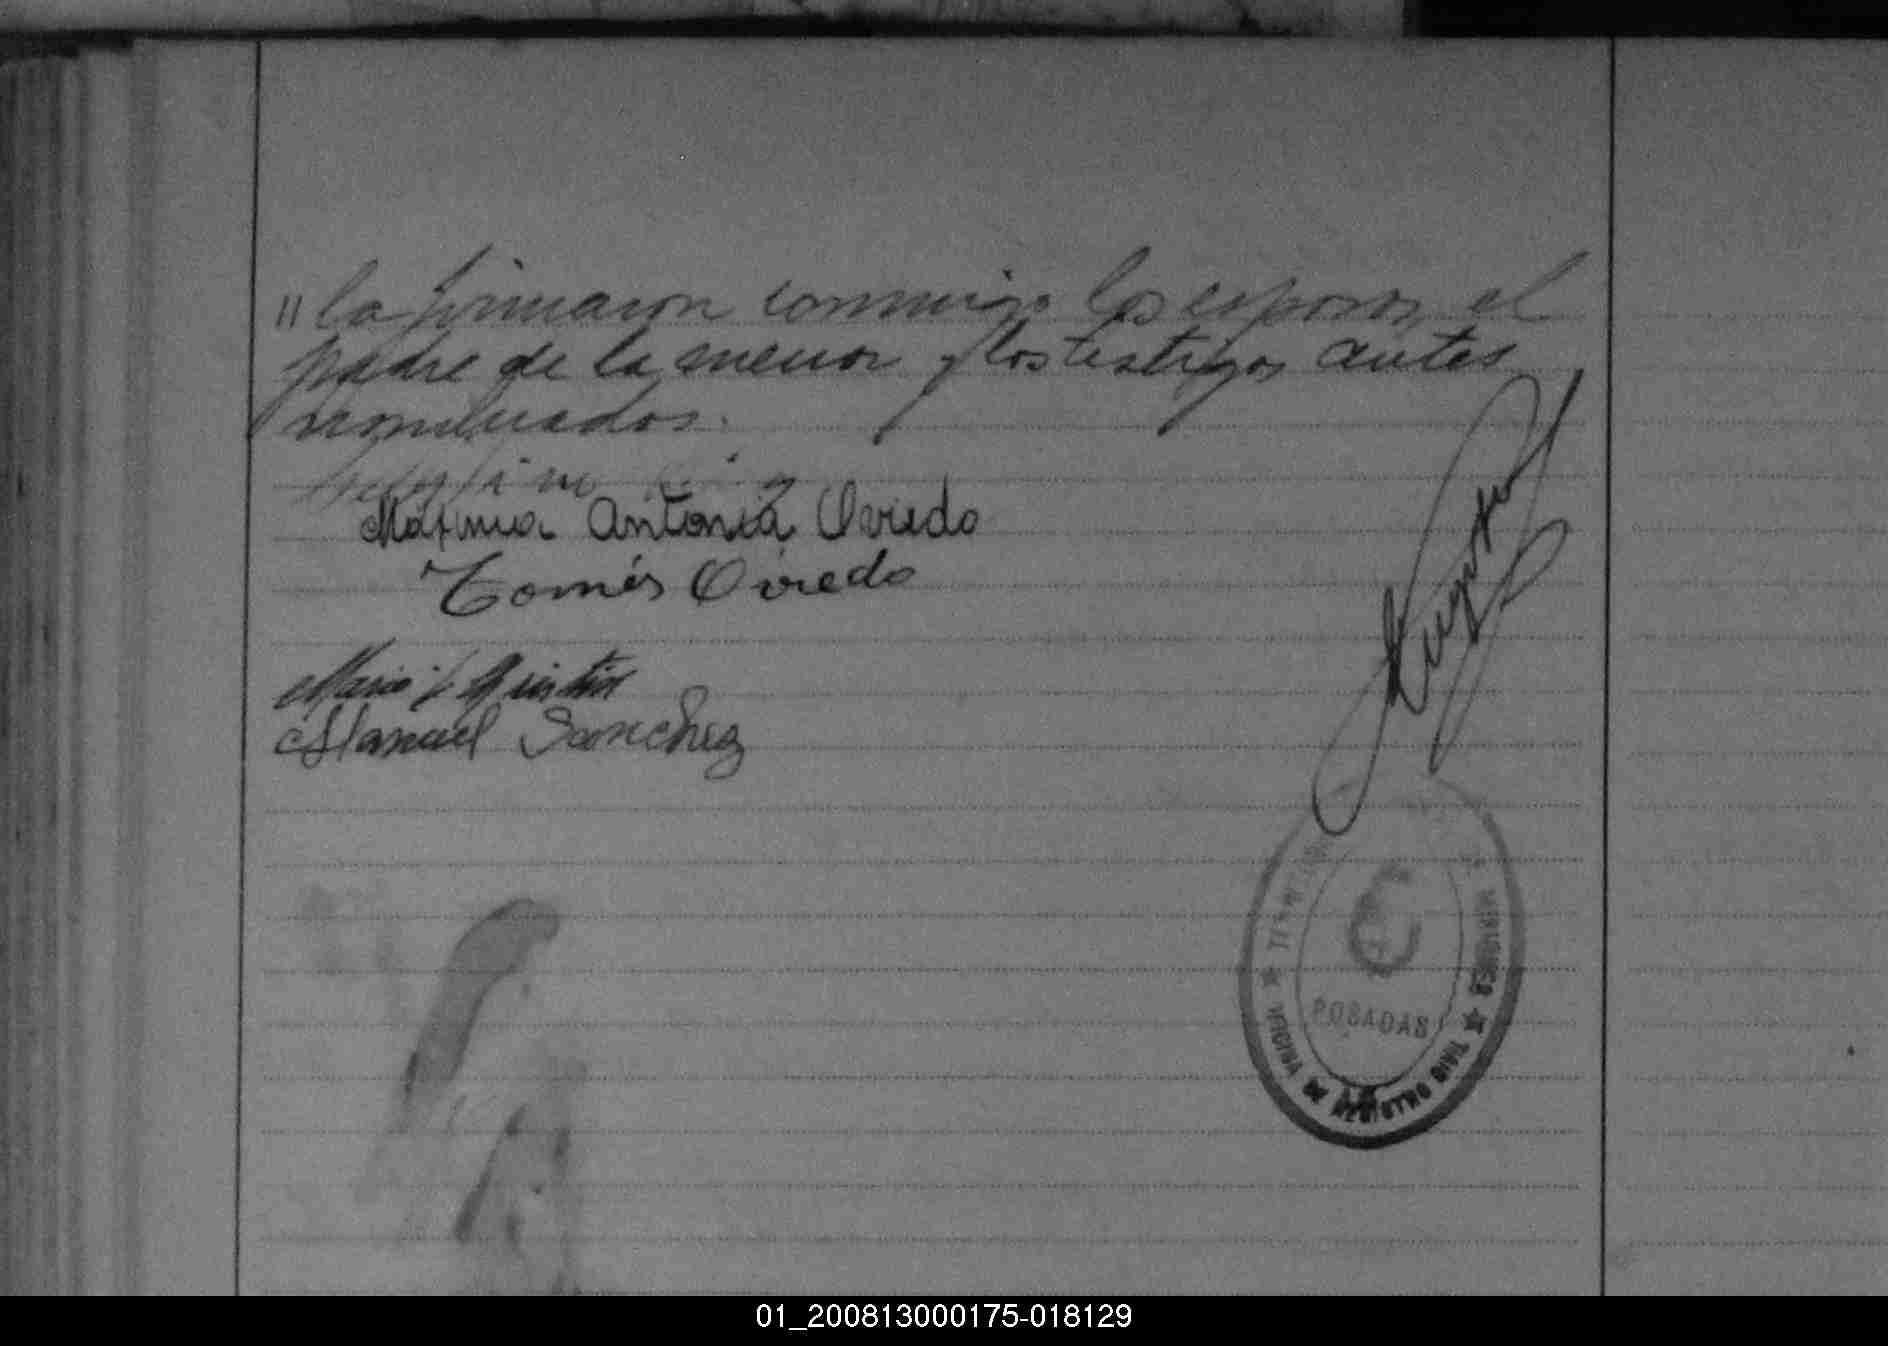 "la firmaron conmigo los esposos, el
padre de la menor y los testigos antes
nombrados.
Maxima Antonia Oviedo
Tomés Oviedo
Manuel Sanchez
MISIONES
POSADAS
OFICINA DE REGISTRO CIVIL
01_200813000175-018129